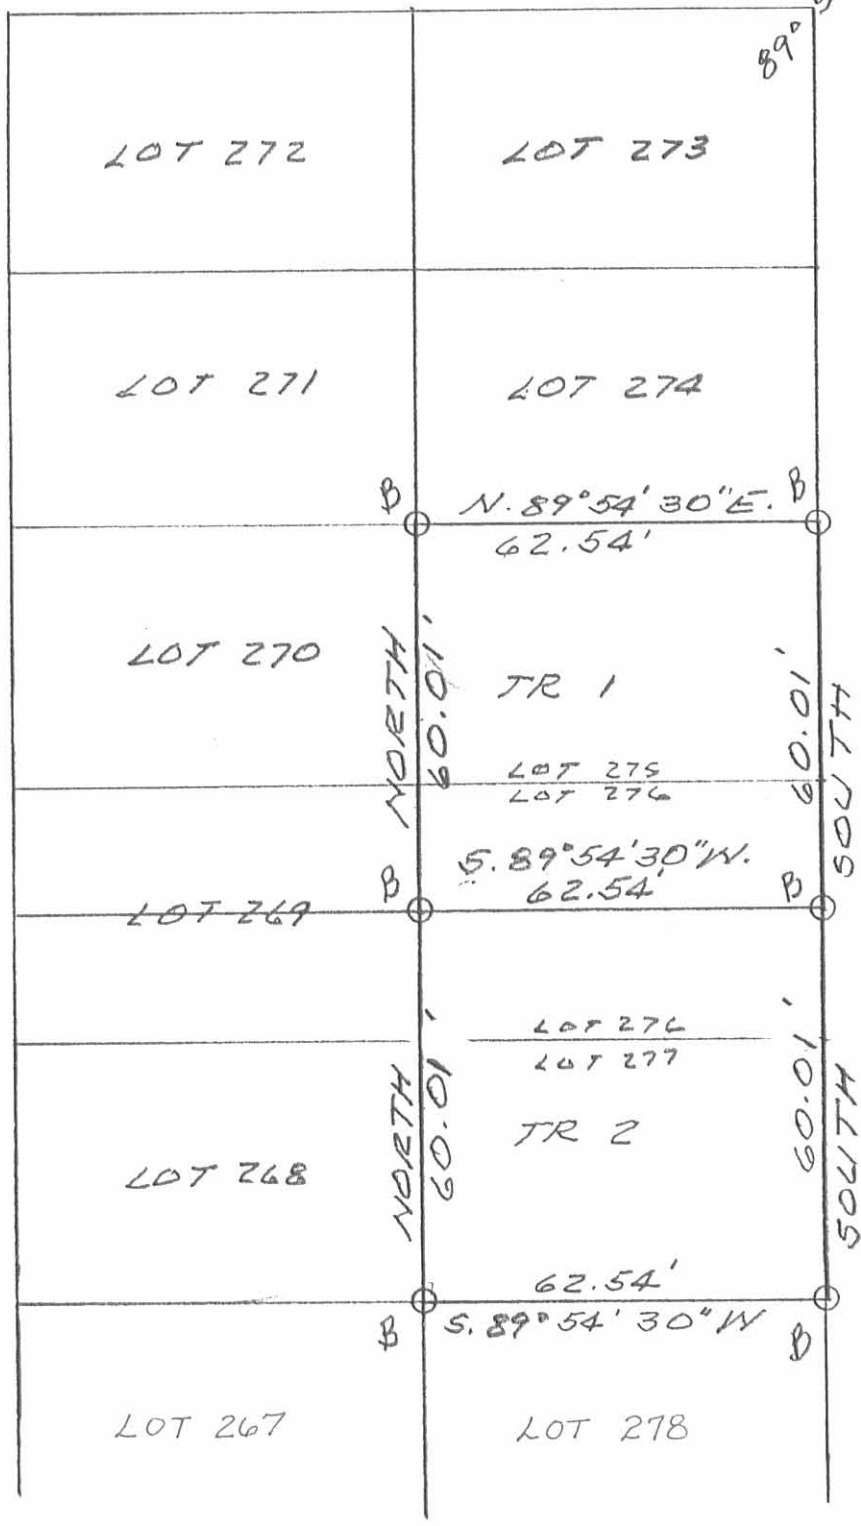 89°
LOT 272
LOT 273
LOT 271
LOT 274
B
N. 89°54' 30"E.
B
62.54'
LOT 270
NORTH
60.01'
TR 1
60.01'
SOUTH
LOT 275
LOT 276
S. 89°54'30"W.
B
62.54'
B
LOT 269
LOT 276
LOT 277
NORTH
60.01'
TR 2
60.01'
SOUTH
LOT 268
62.54'
B
S. 89°54' 30"W
B
LOT 267
LOT 278